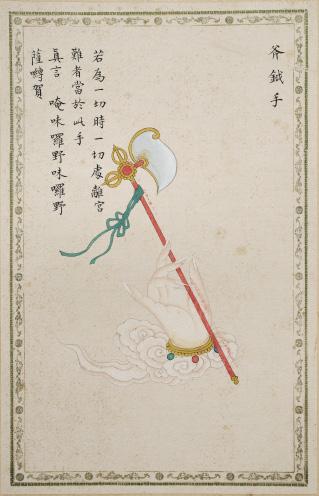 斧鉞手
若為一切時一切處離官
難者當於此手
真言 唵味囉野味囉野
薩嚩賀